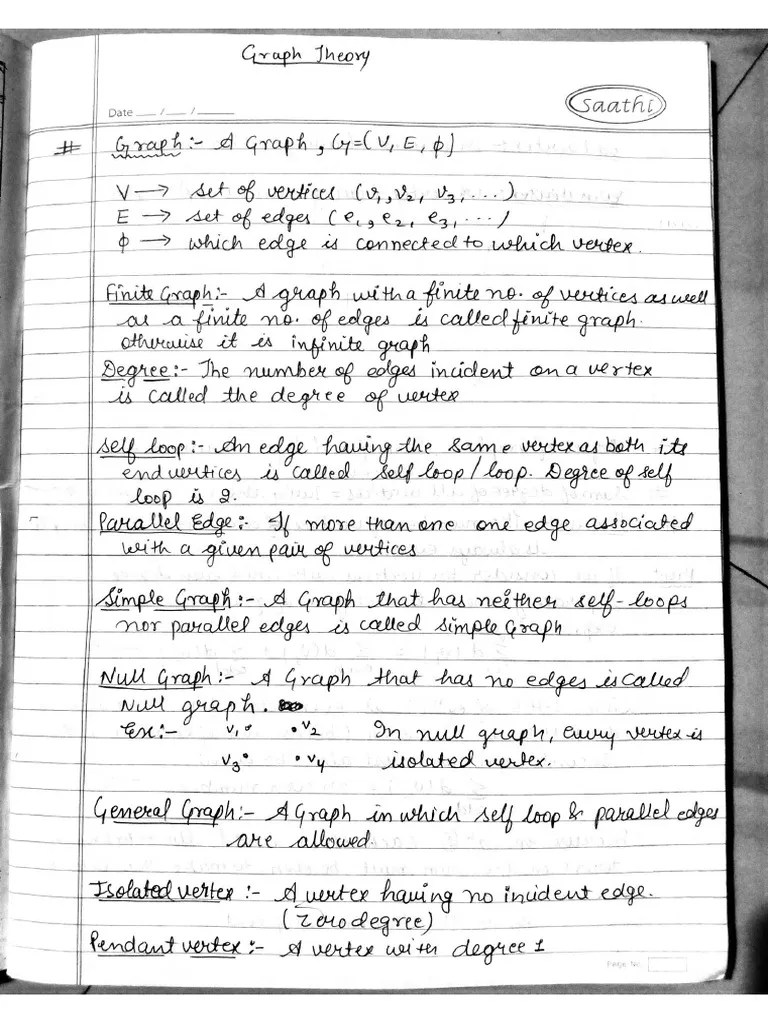 Graph Theory
Date ___ / ___ / _____
Saathi
# Graph:- A Graph, G=(V, E, ϕ)
V → set of vertices (v₁, v₂, v₃, ....)
E → set of edges (e₁, e₂, e₃, ....)
ϕ → which edge is connected to which vertex.
Finite Graph:- A graph with a finite no. of vertices as well
as a finite no. of edges is called finite graph.
otherwise it is infinite graph
Degree:- The number of edges incident on a vertex
is called the degree of vertex
Self loop:- An edge having the same vertex as both its
end vertices is called self loop/loop. Degree of self
loop is 2.
Parallel Edge:- If more than one one edge associated
with a given pair of vertices
Simple Graph:- A Graph that has neither self-loops
nor parallel edges is called simple Graph
Null Graph:- A Graph that has no edges is called
Null graph.
Ex:- v₁• •v₂ In null graph, every vertex is
v₃• •v₄ isolated vertex.
General Graph:- A Graph in which self loop & parallel edges
are allowed
Isolated vertex:- A vertex having no incident edge.
(Zero degree)
Pendant vertex:- A vertex with degree 1
Page No.